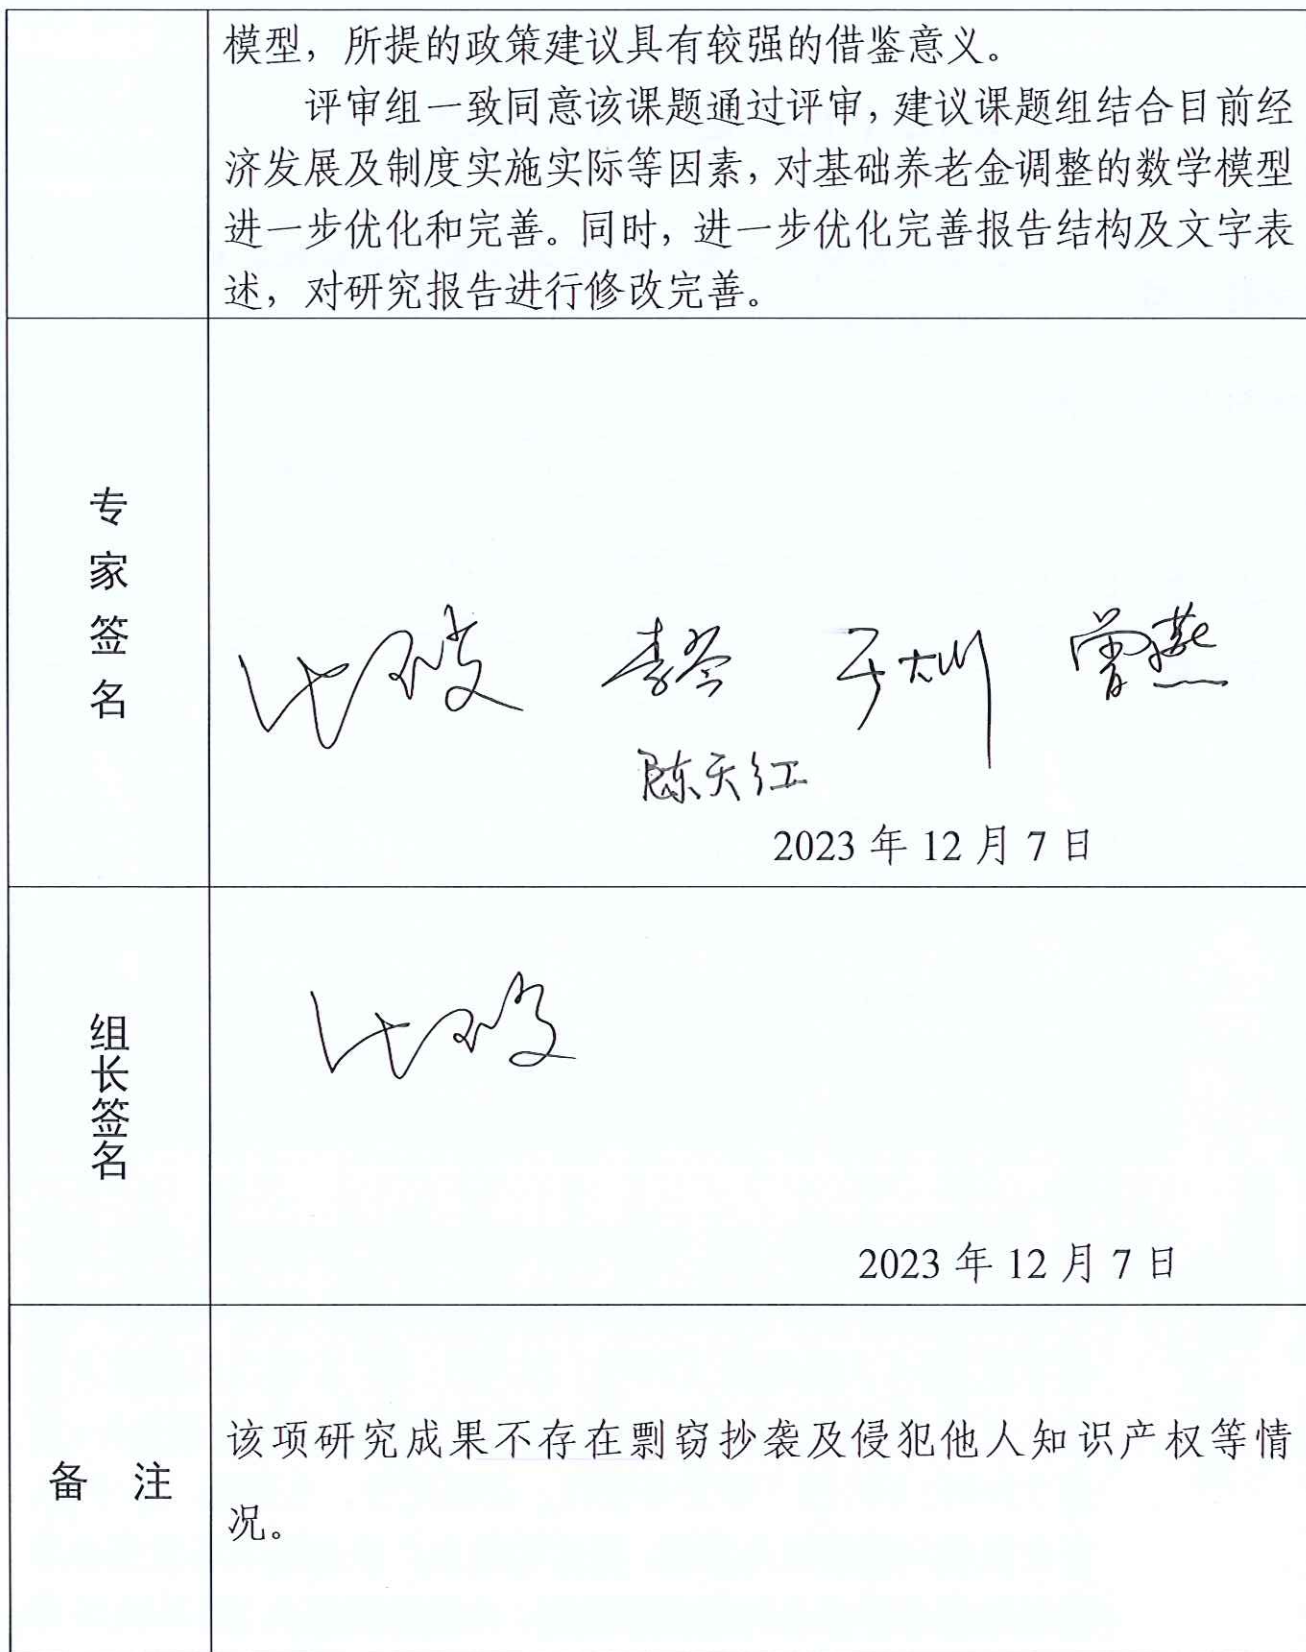 模型，所提的政策建议具有较强的借鉴意义。
评审组一致同意该课题通过评审，建议课题组结合目前经
济发展及制度实施实际等因素，对基础养老金调整的数学模型
进一步优化和完善。同时，进一步优化完善报告结构及文字表
述，对研究报告进行修改完善。
专家签名
于大川 曾燕
陈天红
2023 年 12 月 7 日
组长签名
2023 年 12 月 7 日
备 注
该项研究成果不存在剽窃抄袭及侵犯他人知识产权等情
况。